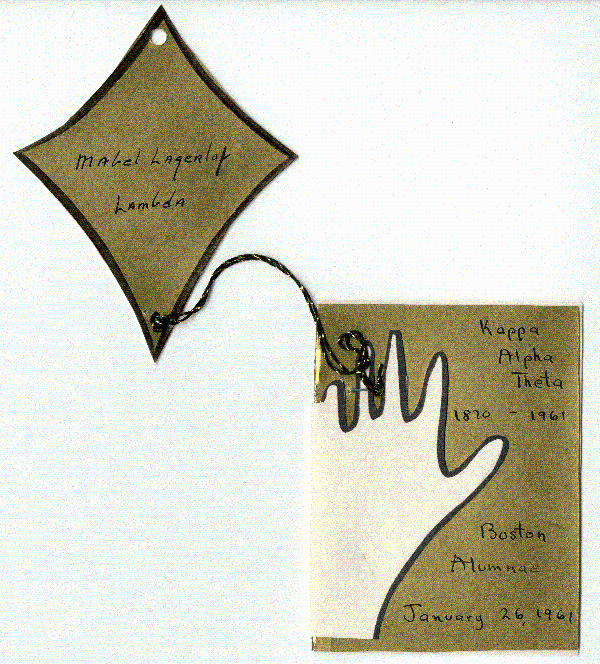 Mabel Lagerlof
Lambda
Kappa
Alpha
Theta
1870 - 1961
Boston
Alumnae
January 26, 1961